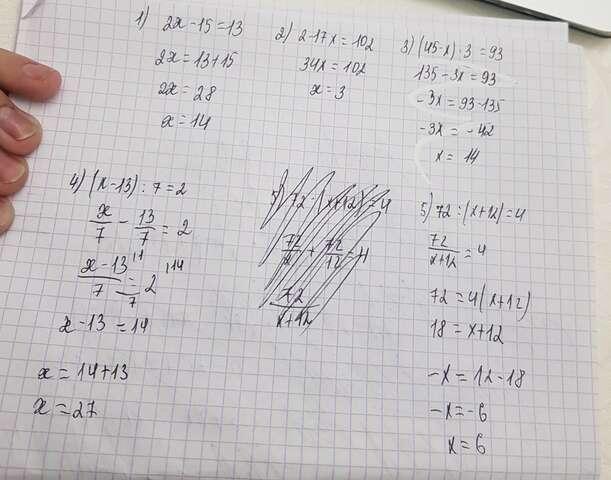 1) 2x-15=13
2x=13+15
2x=28
x=14
2) 2-17x=102
34x=102
x=3
3) (45-x):3=93
135-3x=93
-3x=93-135
-3x=-42
x=14
4) (x-13):7=2
x/7 - 13/7 = 2
x-13\1 /7 = 2\14 /7
x-13=14
x=14+13
x=27
5) 72:(x+12)=4
72/x + 72/12 = 4
72/x+12
5) 72:(x+12)=4
72/x+12 = 4
72=4(x+12)
18=x+12
-x=12-18
-x=-6
x=6